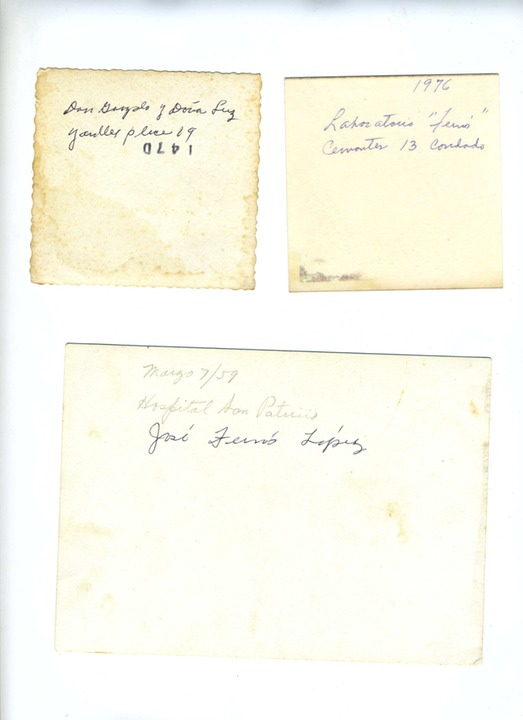 Don Gonzalo y Doña Luz
Yardley place 19
1470
1976
Laboratorio "Ferrós"
Cervantes 13 Condado
Marzo 7/59
Hospital San Patricio
José Ferrós López